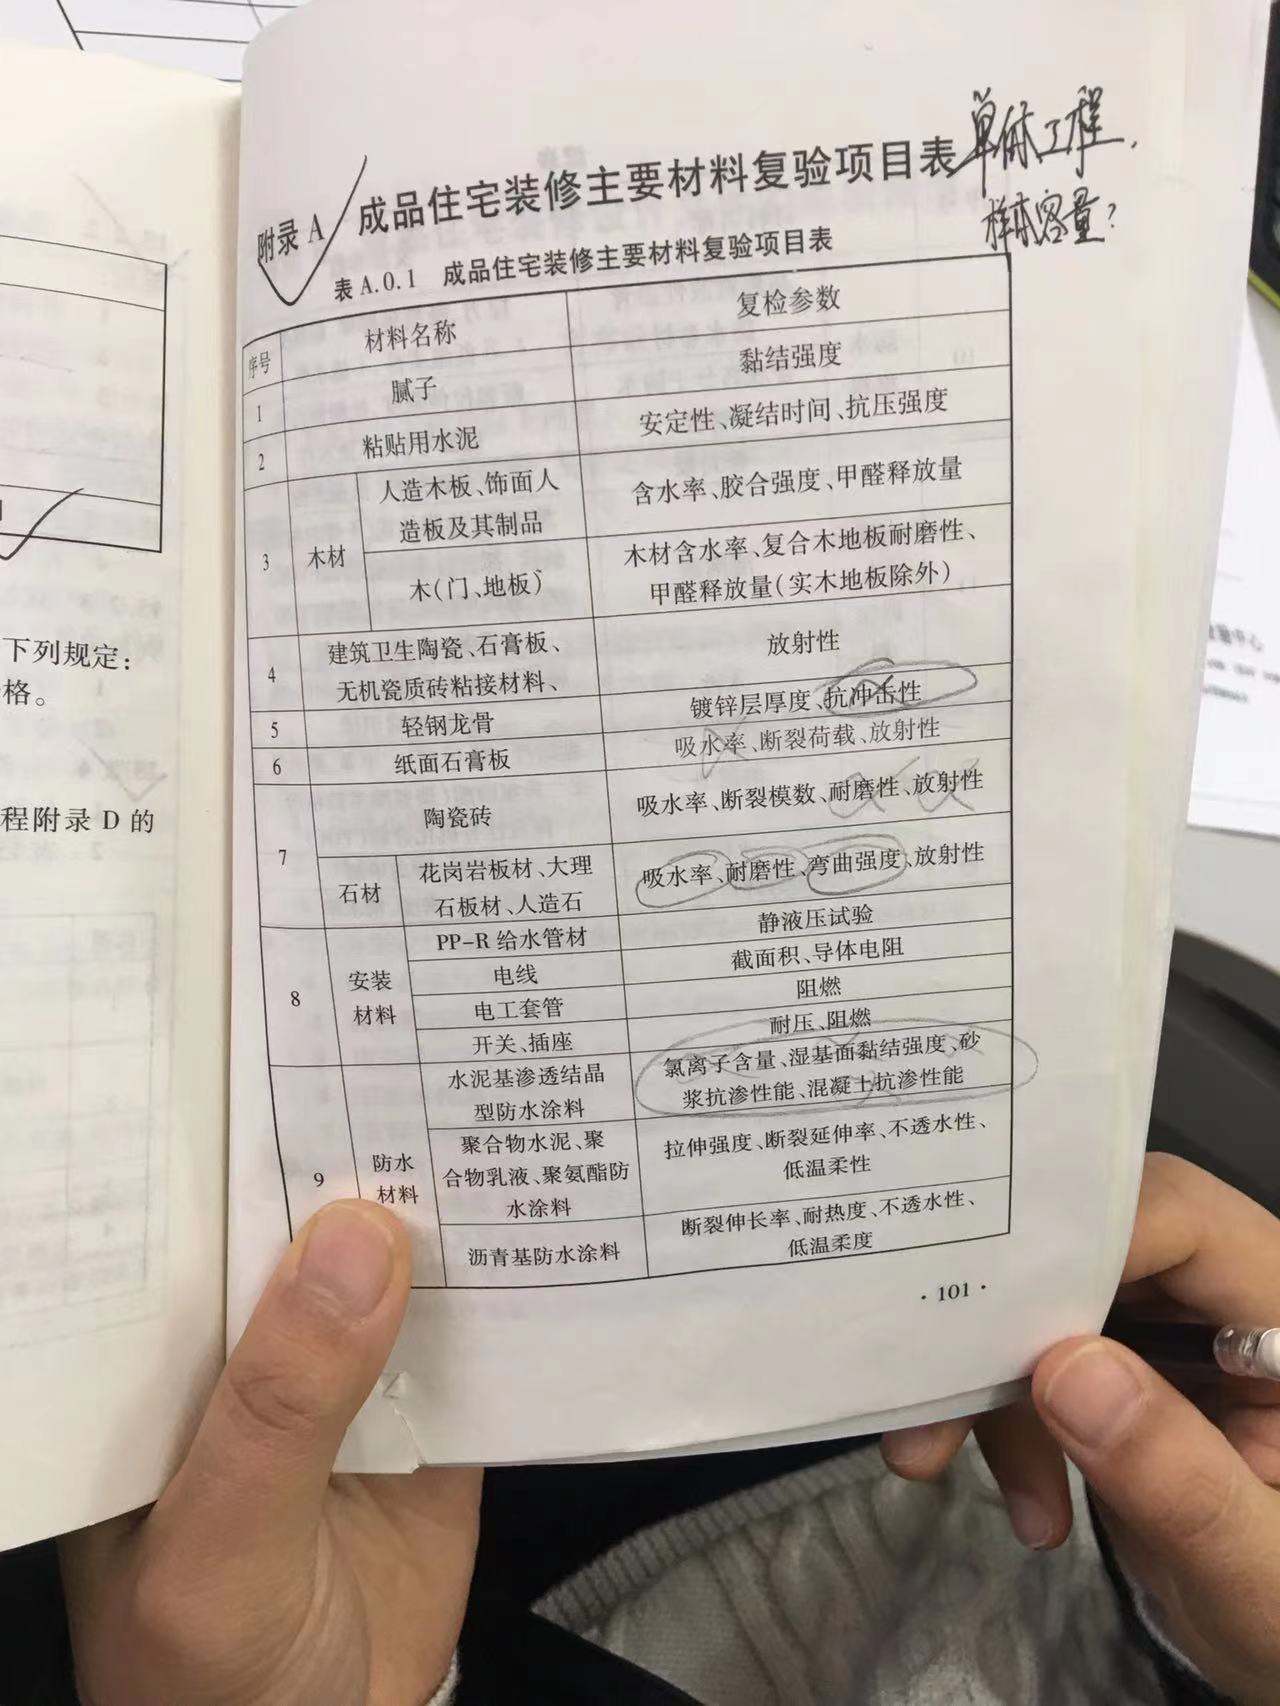 下列规定：
格。
程附录 D 的
单体工程，
样本容量？
附录 A 成品住宅装修主要材料复验项目表
表 A.0.1 成品住宅装修主要材料复验项目表
序号 材料名称 复检参数
1 腻子 黏结强度
2 粘贴用水泥 安定性、凝结时间、抗压强度
3 木材
人造木板、饰面人
造板及其制品
含水率、胶合强度、甲醛释放量
木（门、地板）
木材含水率、复合木地板耐磨性、
甲醛释放量（实木地板除外）
4
建筑卫生陶瓷、石膏板、
无机瓷质砖粘接材料、
放射性
5 轻钢龙骨 镀锌层厚度、抗冲击性
6 纸面石膏板 吸水率、断裂荷载、放射性
7
陶瓷砖 吸水率、断裂模数、耐磨性、放射性
石材
花岗岩板材、大理
石板材、人造石
吸水率、耐磨性、弯曲强度、放射性
8
安装
材料
PP-R 给水管材 静液压试验
电线 截面积、导体电阻
电工套管 阻燃
开关、插座 耐压、阻燃
9
防水
材料
水泥基渗透结晶
型防水涂料
氯离子含量、湿基面黏结强度、砂
浆抗渗性能、混凝土抗渗性能
聚合物水泥、聚
合物乳液、聚氨酯防
水涂料
拉伸强度、断裂延伸率、不透水性、
低温柔性
沥青基防水涂料
断裂伸长率、耐热度、不透水性、
低温柔度
· 101 ·